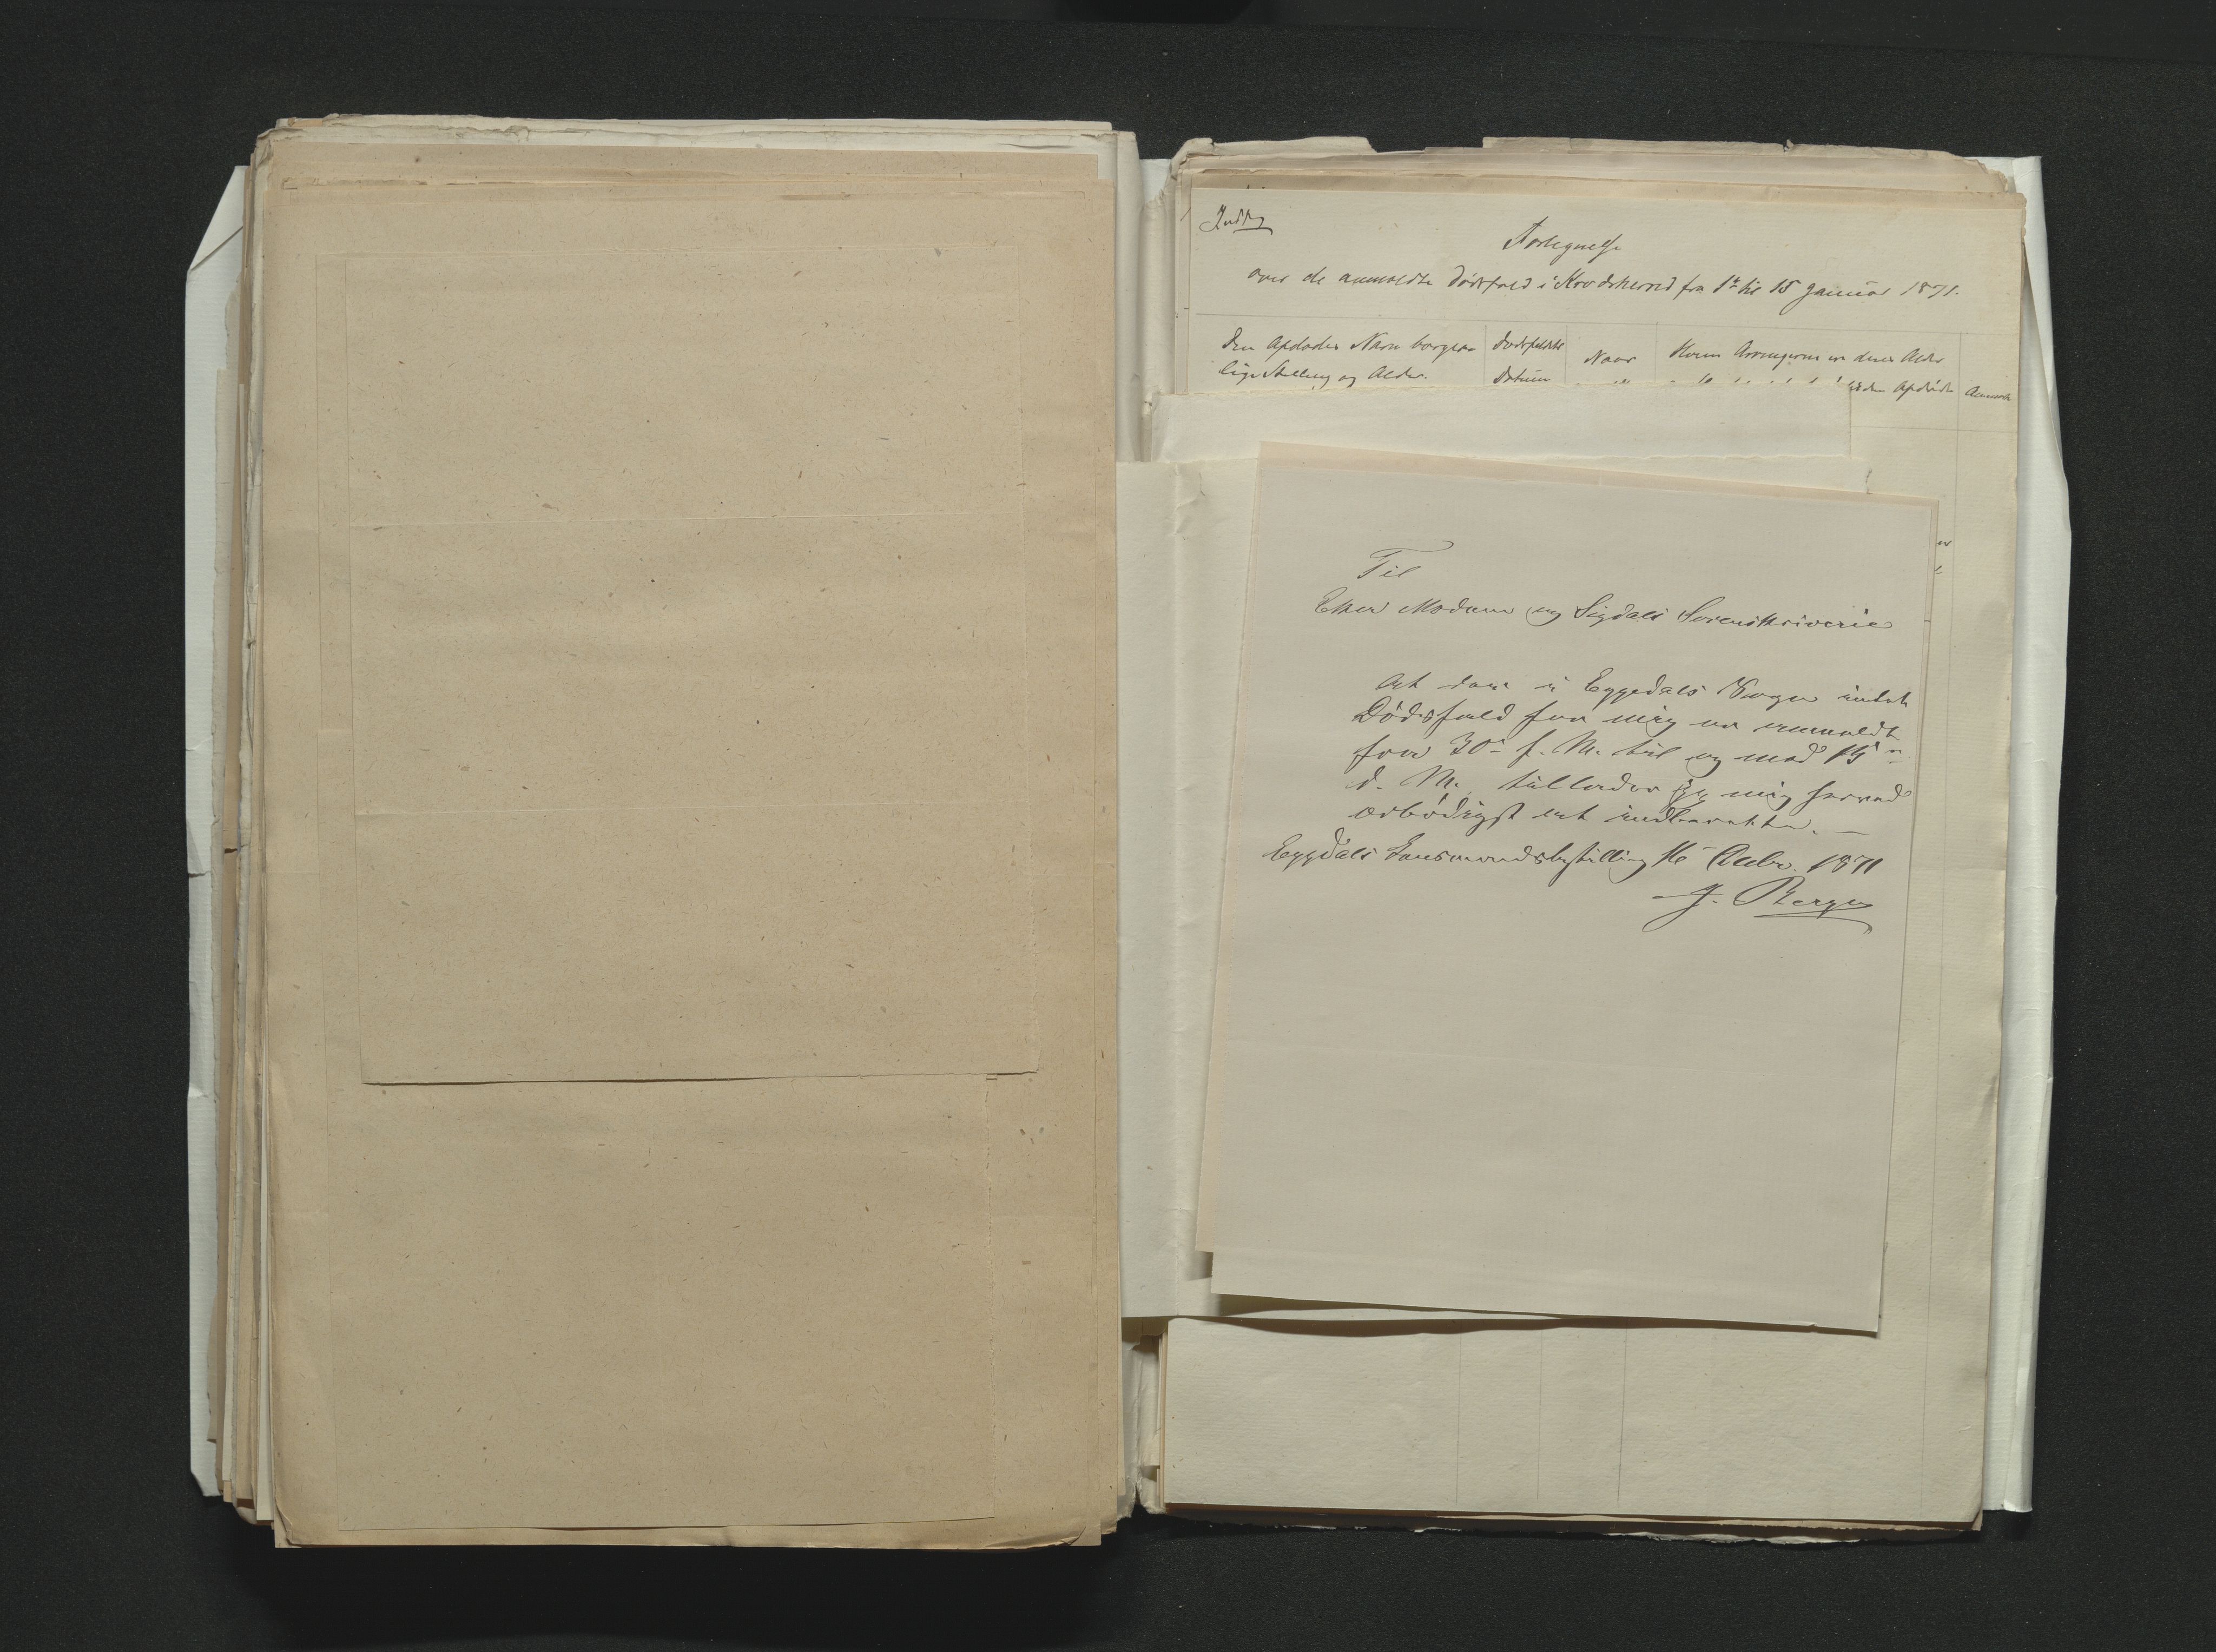 Indtg
Fortegnelse
over de anmeldte Dødsfald i Krødsherred fra 1ste til 15 Januar 1871.
Den Afdødes Navn borger-
lige Stilling og Alder.
Dødsfaldets
Datum
Naar
Hvem Arvingerne er deres Alder
den Afdøde
Anmærk
Til
Eker Modum og Sigdals Sorenskriverie
At der i Eggedals Sogn intet
Dødsfald for mig er anmeldt
fra 30te f. M. til og med 15de
d. M. tillader jeg mig herved
ærbødigst at indberette. —
Eggedals Lensmandsbestilling 16 1871
J. Berger